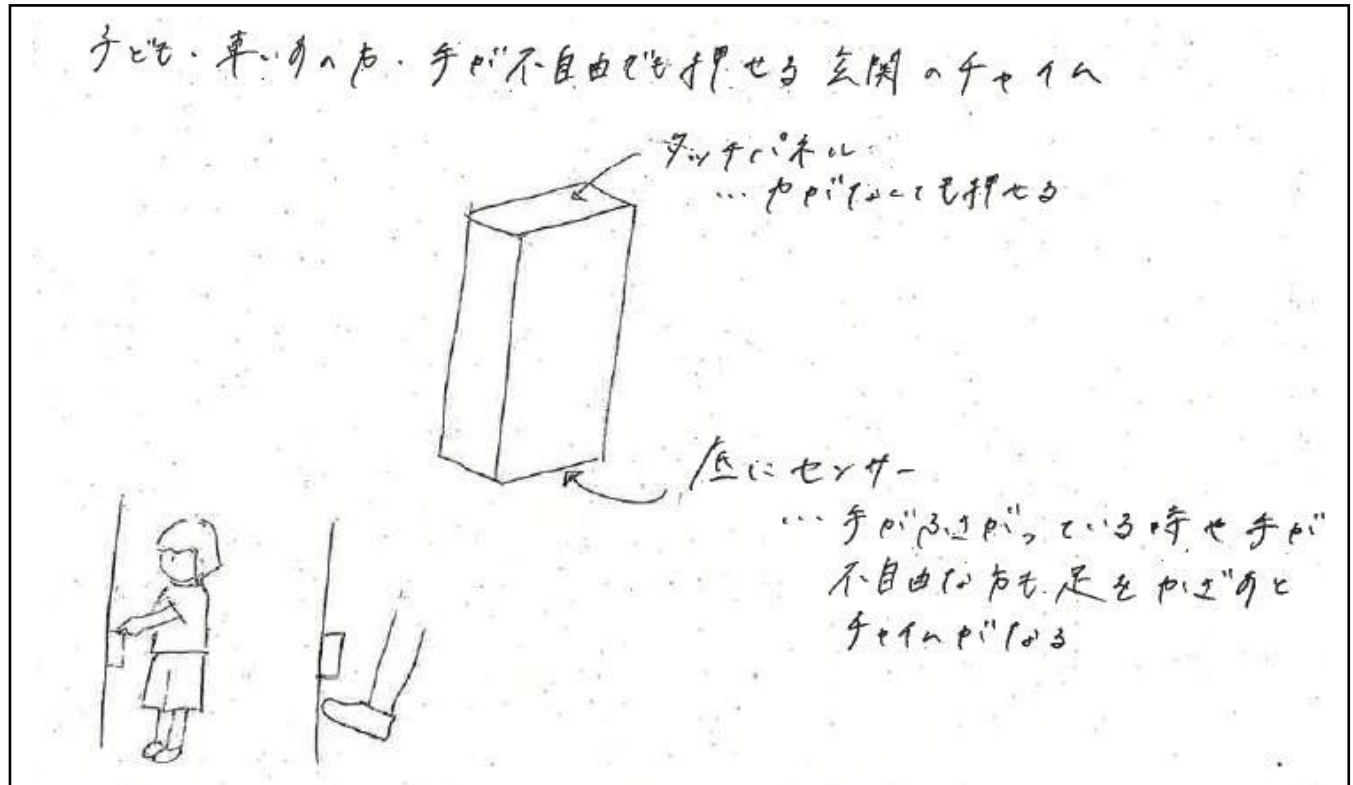 子ども・車いすの方・手が不自由でも押せる玄関のチャイム
タッチパネル
…力がなくても押せる
底にセンサー
…手がふさがっている時や手が
不自由な方も足をかざすと
チャイムがなる